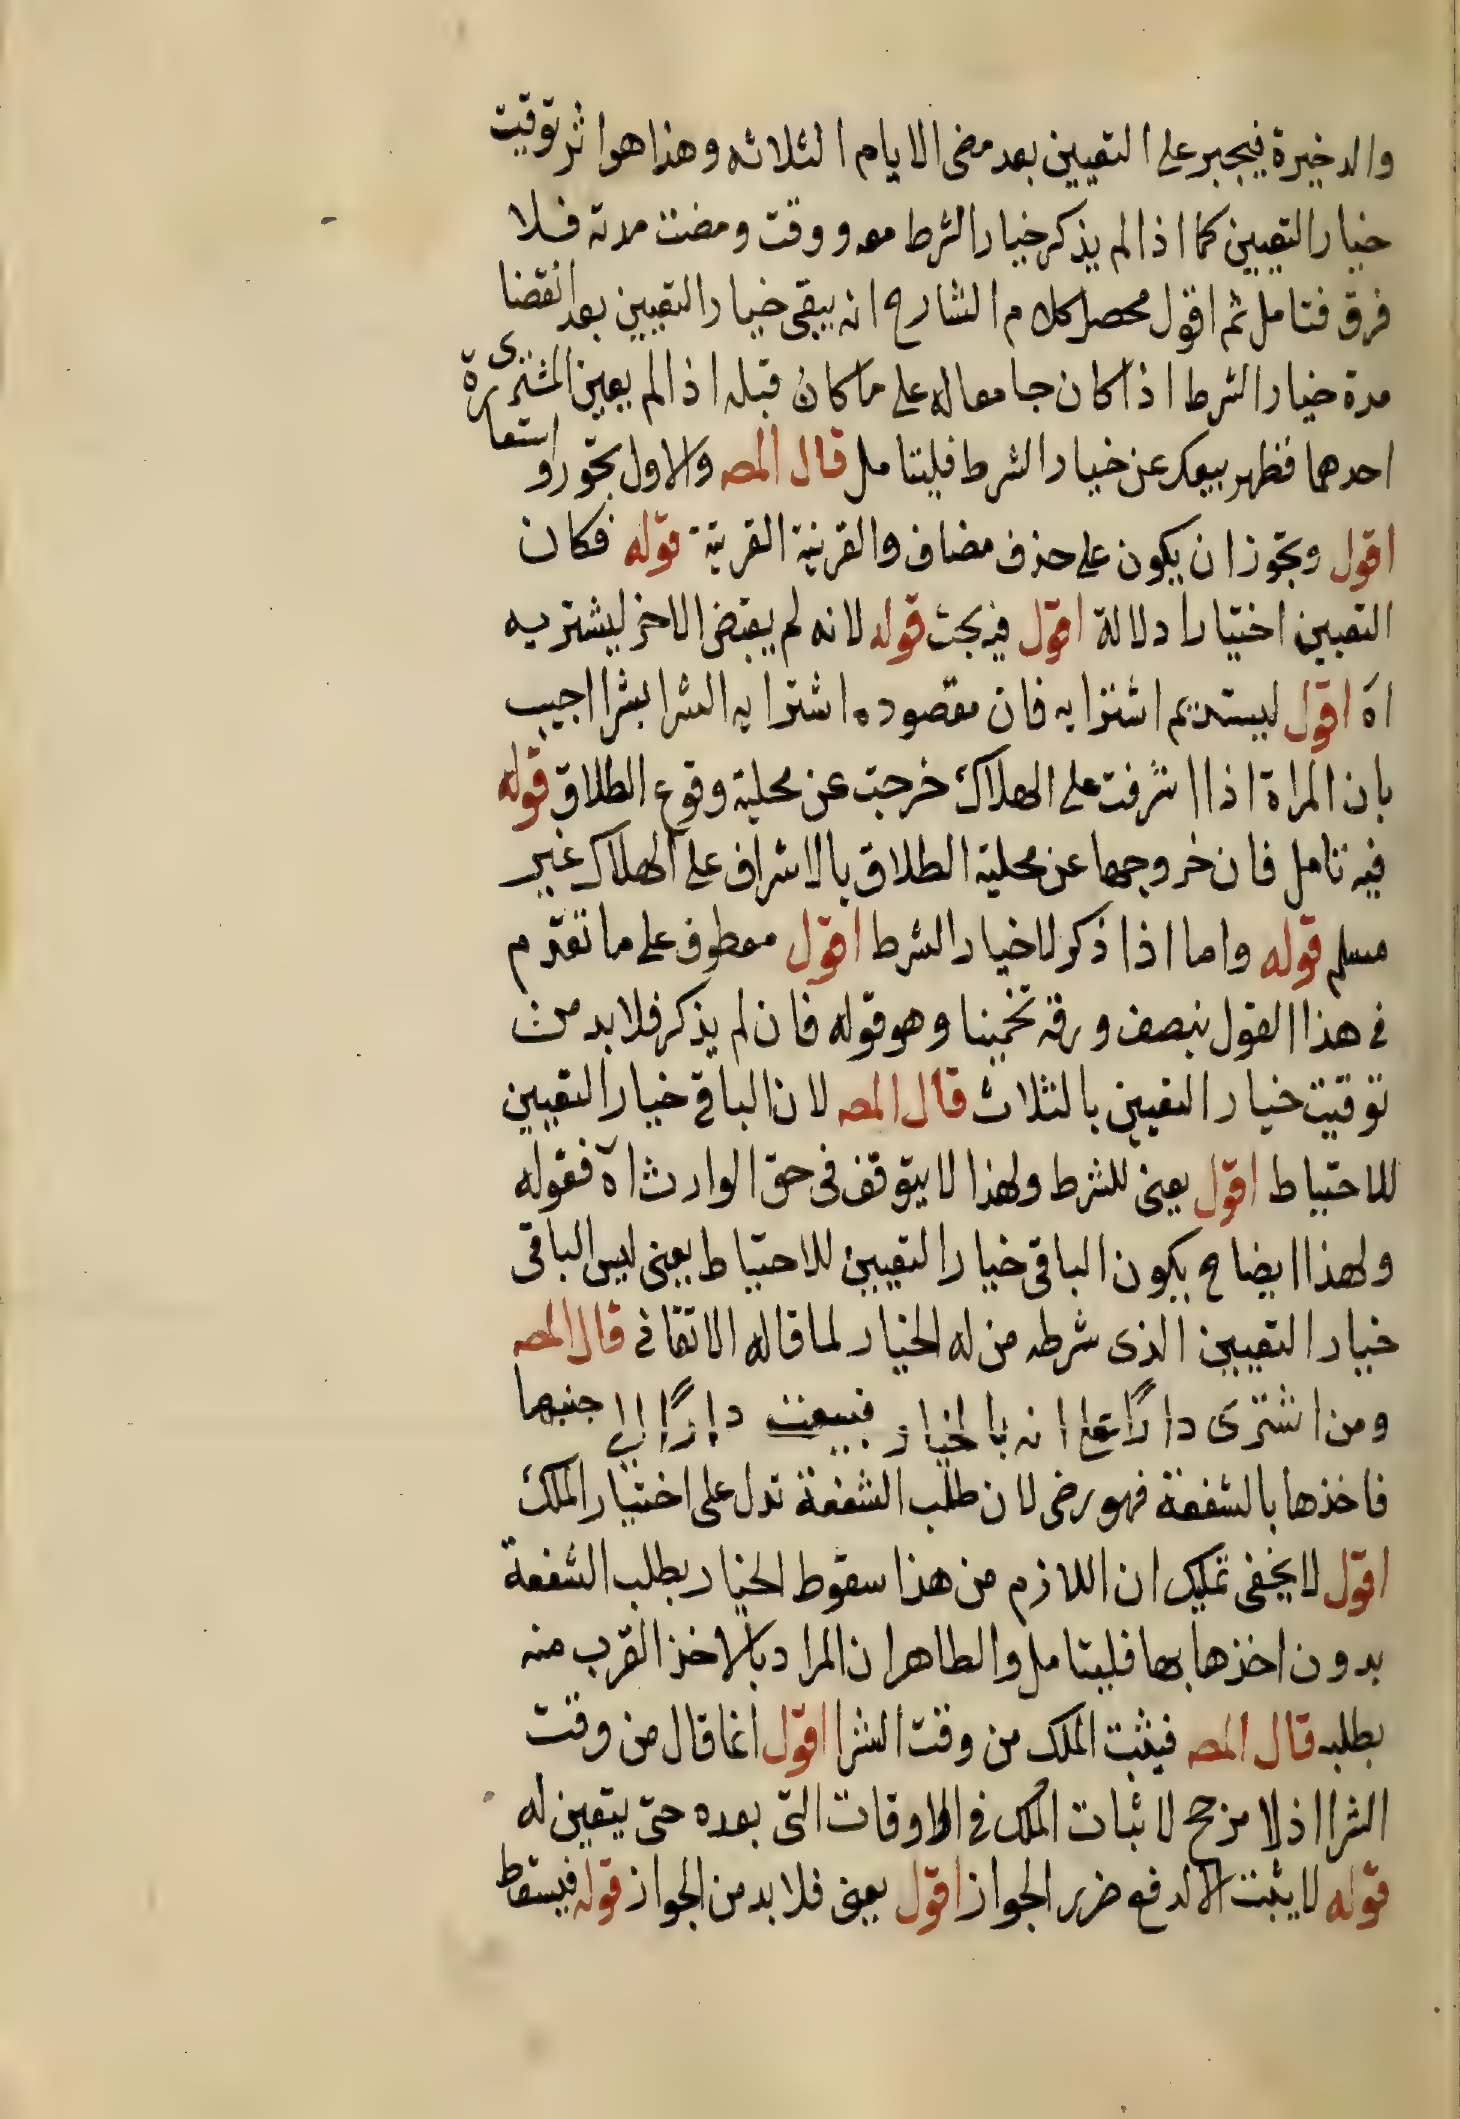 والدخيرة فيجبر على التعيين بعد مضى الايام الثلاثه وهذا هو اثر توقيت
خيار التعيين كما اذا لم يذكر خيار الشرط معه ووقت ومضت مدته فلا
فرق فتامل ثم اقول محصل كلام الشارح انه يبقى خيار التعيين بعد انقضا
مدة خيار الشرط اذا كان جامعا له على ما كان قبله اذا لم يعين المشترى
احدهما فظهر بيعك عن خيار الشرط فليتامل قال المصـ والاول تجوز او استعارة
اقول ويجوز ان يكون على حذف مضاف والقرنية القريته قوله فكان
التعيين اختيارا دلالة اقول فيه بحث قوله لانه لم يقتض الاخر ليشتريه
اه اقول ليستديم اشترايه فان مقصوده اشترايه الشرا بشرا اجيب
بان المراة اذا اشرفت على الهلاك خرجت عن محلية وقوع الطلاق قوله
فيه تامل فان خروجها عن محلية الطلاق بالاشراف على الهلاك غير
مسلم قوله واما اذا ذكر لا خيار الشرط اقول معطوف على ما تقدم
فى هذا القول بنصف ورقه تخمينا وهو قوله فان لم يذكر فلا بد من
توقيت خيار التعيين بالثلاث قال المصـ لان الباقى خيار التعيين
للاحتياط اقول يعنى للشرط ولهذا لا يتوقف فى حق الوارث اه فقوله
ولهذا ايضاح بكون الباقى خيار التعيين للاحتياط يعنى ليس الباقى
خيار التعيين الذى شرطه من له الخيار لما قاله الاتقانى قال المصـ
ومن اشترى دارًا على انه بالخيار فبيعت دارًا الى جنبها
فاخذها بالشفعة فهو رضى لان طلب الشفعة تدل على اختيار الملك
اقول لا يخفى عليك ان اللازم من هذا سقوط الخيار بطلب الشفعة
بدون اخذها بها فليتامل والطاهر ان المراد بالاخذ القرب منه
بطلبه قال المصـ فيثبت الملك من وقت الشرا اقول انما قال من وقت
الشرا اذ لا مرجح لاثبات الملك فى الاوقات التى بعده حتى يتعين له
قوله لا يثبت الا لدفع ضرر الجواز اقول يعنى فلا بد من الجواز قوله فيسقط